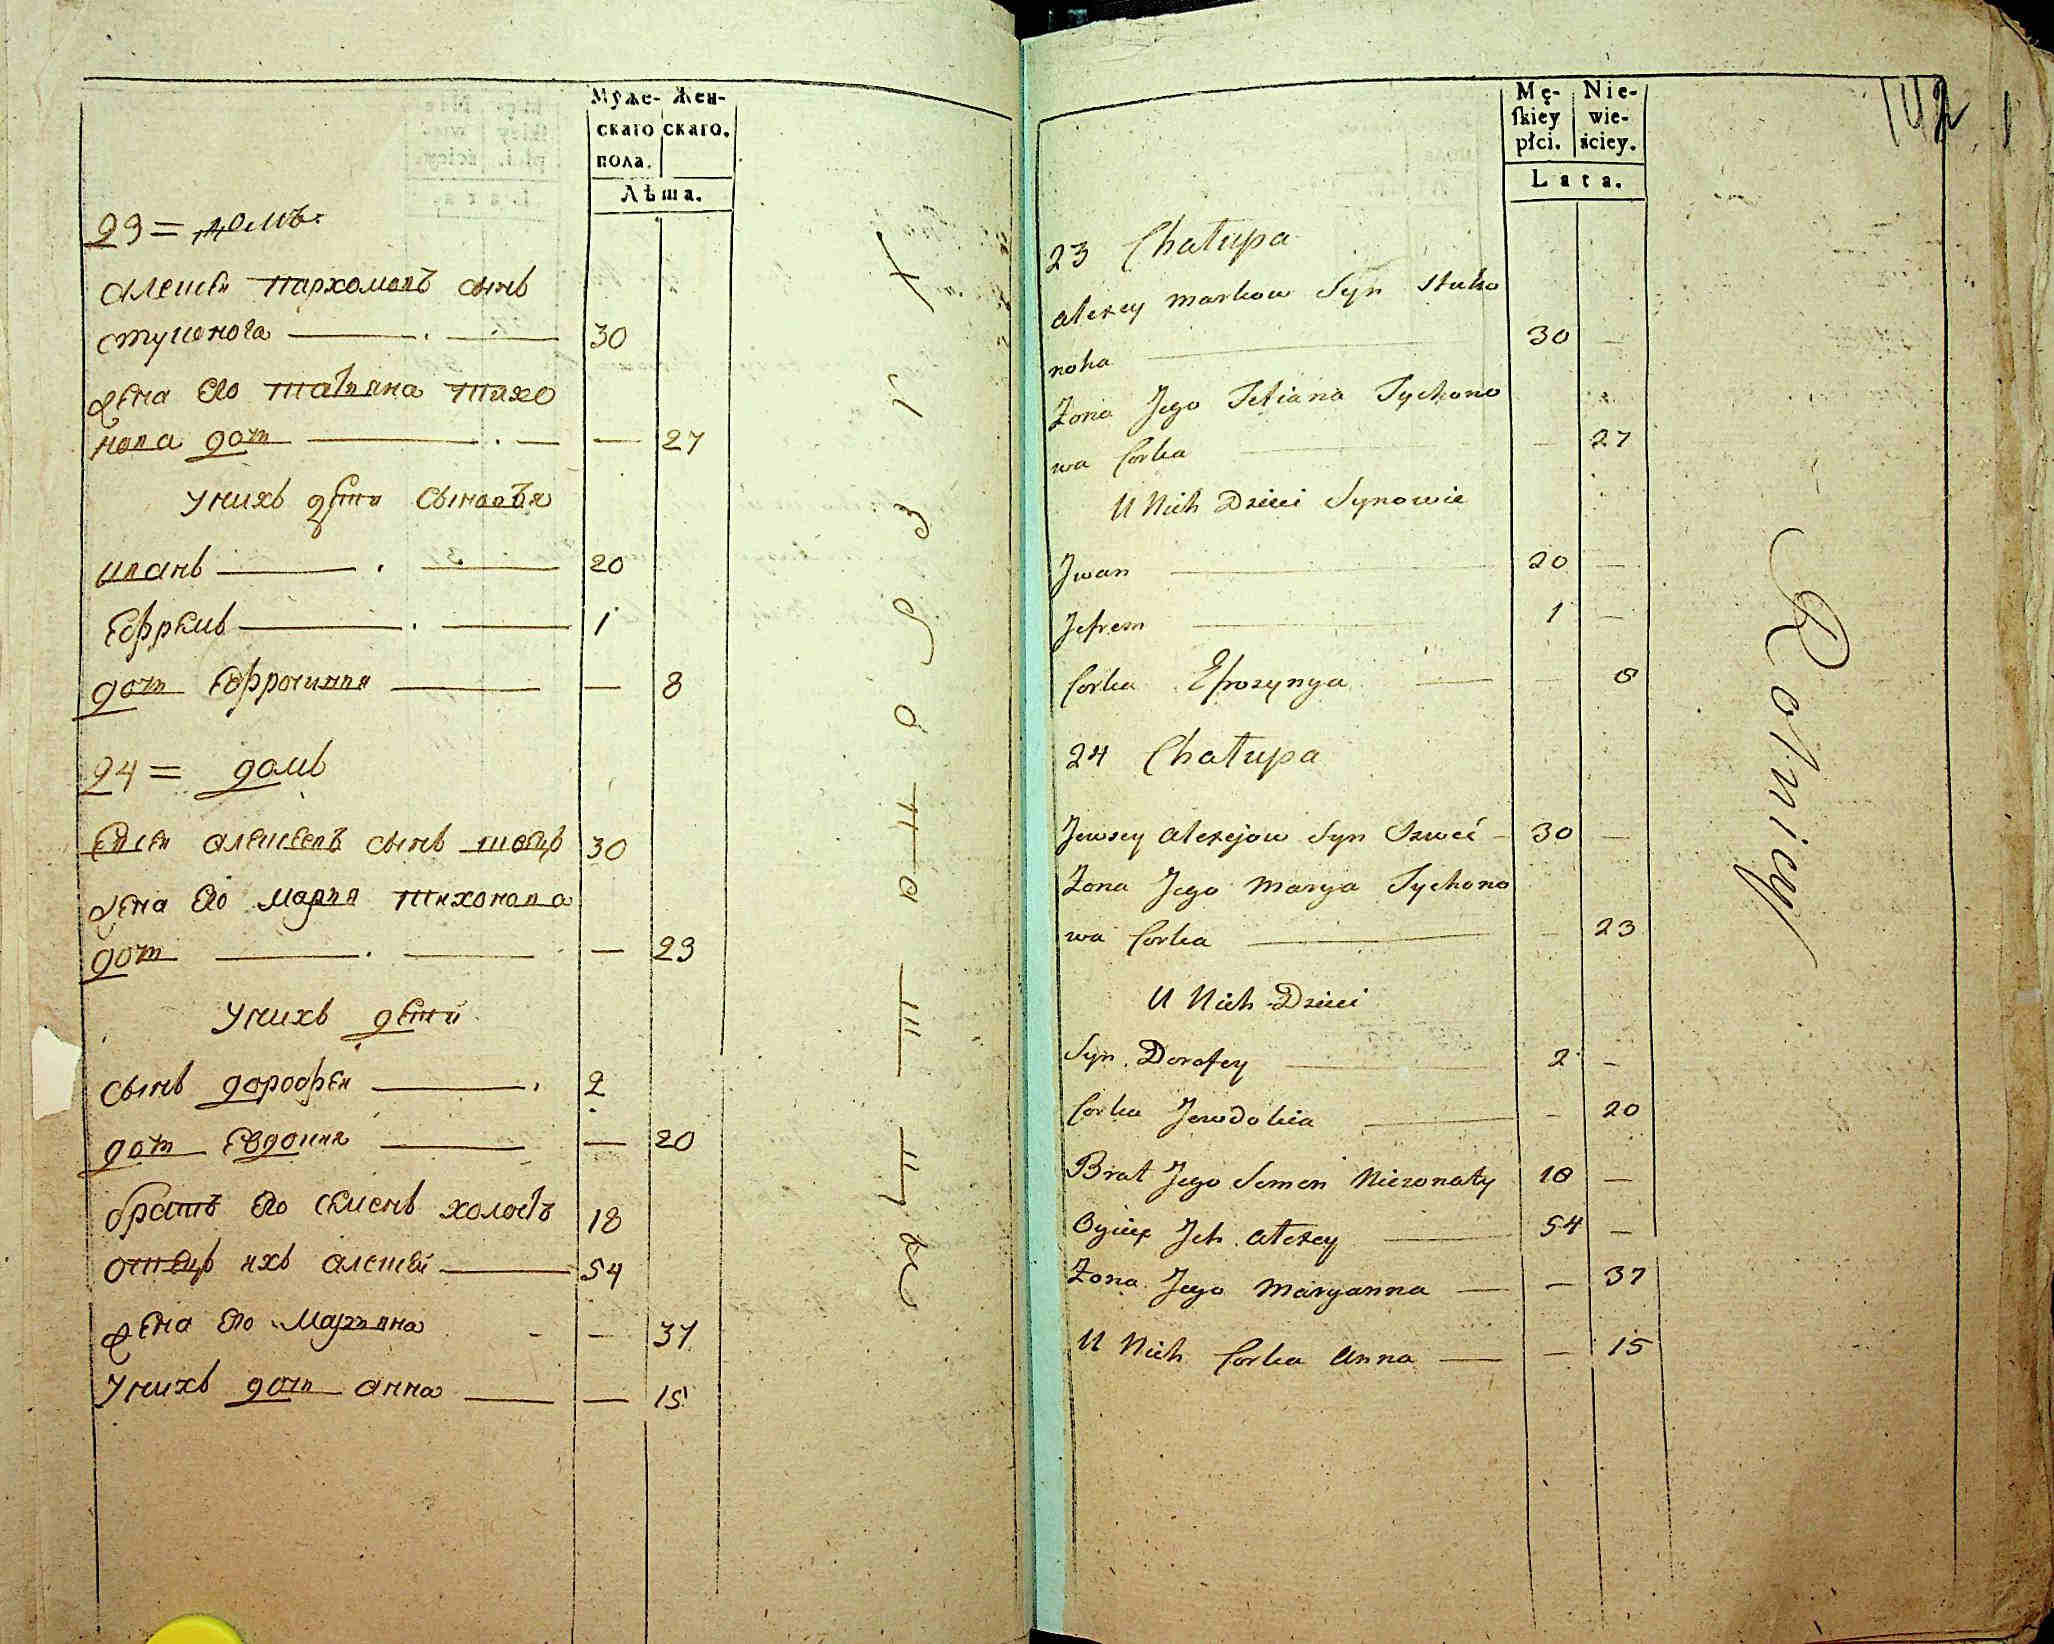 Муже- Жен-
скаго скаго.
пола.
Лѣта.
23 = домъ
алексей пархомовъ сынъ
стуконога 30
жена его татьяна тихо
нова доч — 27
у нихъ дети сыновья
иванъ 20
Ефремъ 1
доч Ефросинья — 8
24 = домъ
Евсей алексеевъ сынъ швецъ 30
жена его марья тихонова
доч — 23
у нихъ дети
сынъ дорофей 2
доч Евдокия — 20
братъ его семенъ холостъ 18
отецъ ихъ алексей 54
жена его Марьяна — 37
у нихъ доч анна — 15
хлѣбопашцы
Mę- Nie-
skiey wie-
płci. ściey.
Lata.
102
23 Chałupa
alexey markow Syn Stuko
noha 30 —
Zona Jego Tetiana Tychono
wa Corka — 27
U Nich Dzieci Synowie
Jwan 20 —
Jefrem 1 —
Corka Efrozynya 8
24 Chałupa
Jewsey alexejow Syn Szweć 30 —
Zona Jego Marya Tychono
wa Corka — 23
U Nich Dzieci
Syn Dorofey 2 —
Corka Jewdokia — 20
Brat Jego Semen Niezonaty 18 —
Oyciec Jch alexey 54 —
Zona Jego Maryanna — 37
U Nich Corka Anna — 15
Rolnicy